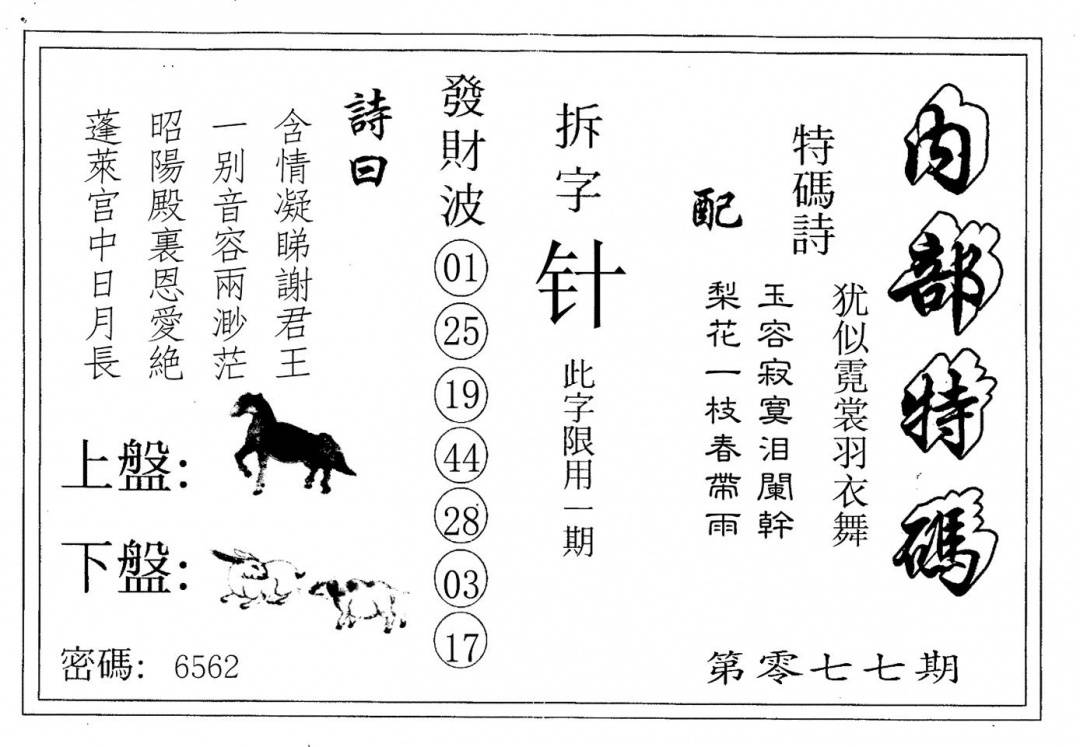 內部特碼
特碼詩
犹似霓裳羽衣舞
配
玉容寂寞泪闌幹
梨花一枝春帶雨
第零七七期
拆字
针
此字限用一期
發財波
01
25
19
44
28
03
17
詩曰
含情凝睇謝君王
一别音容兩渺茫
昭陽殿裏恩愛絕
蓬萊宫中日月長
上盤:
下盤:
密碼: 6562